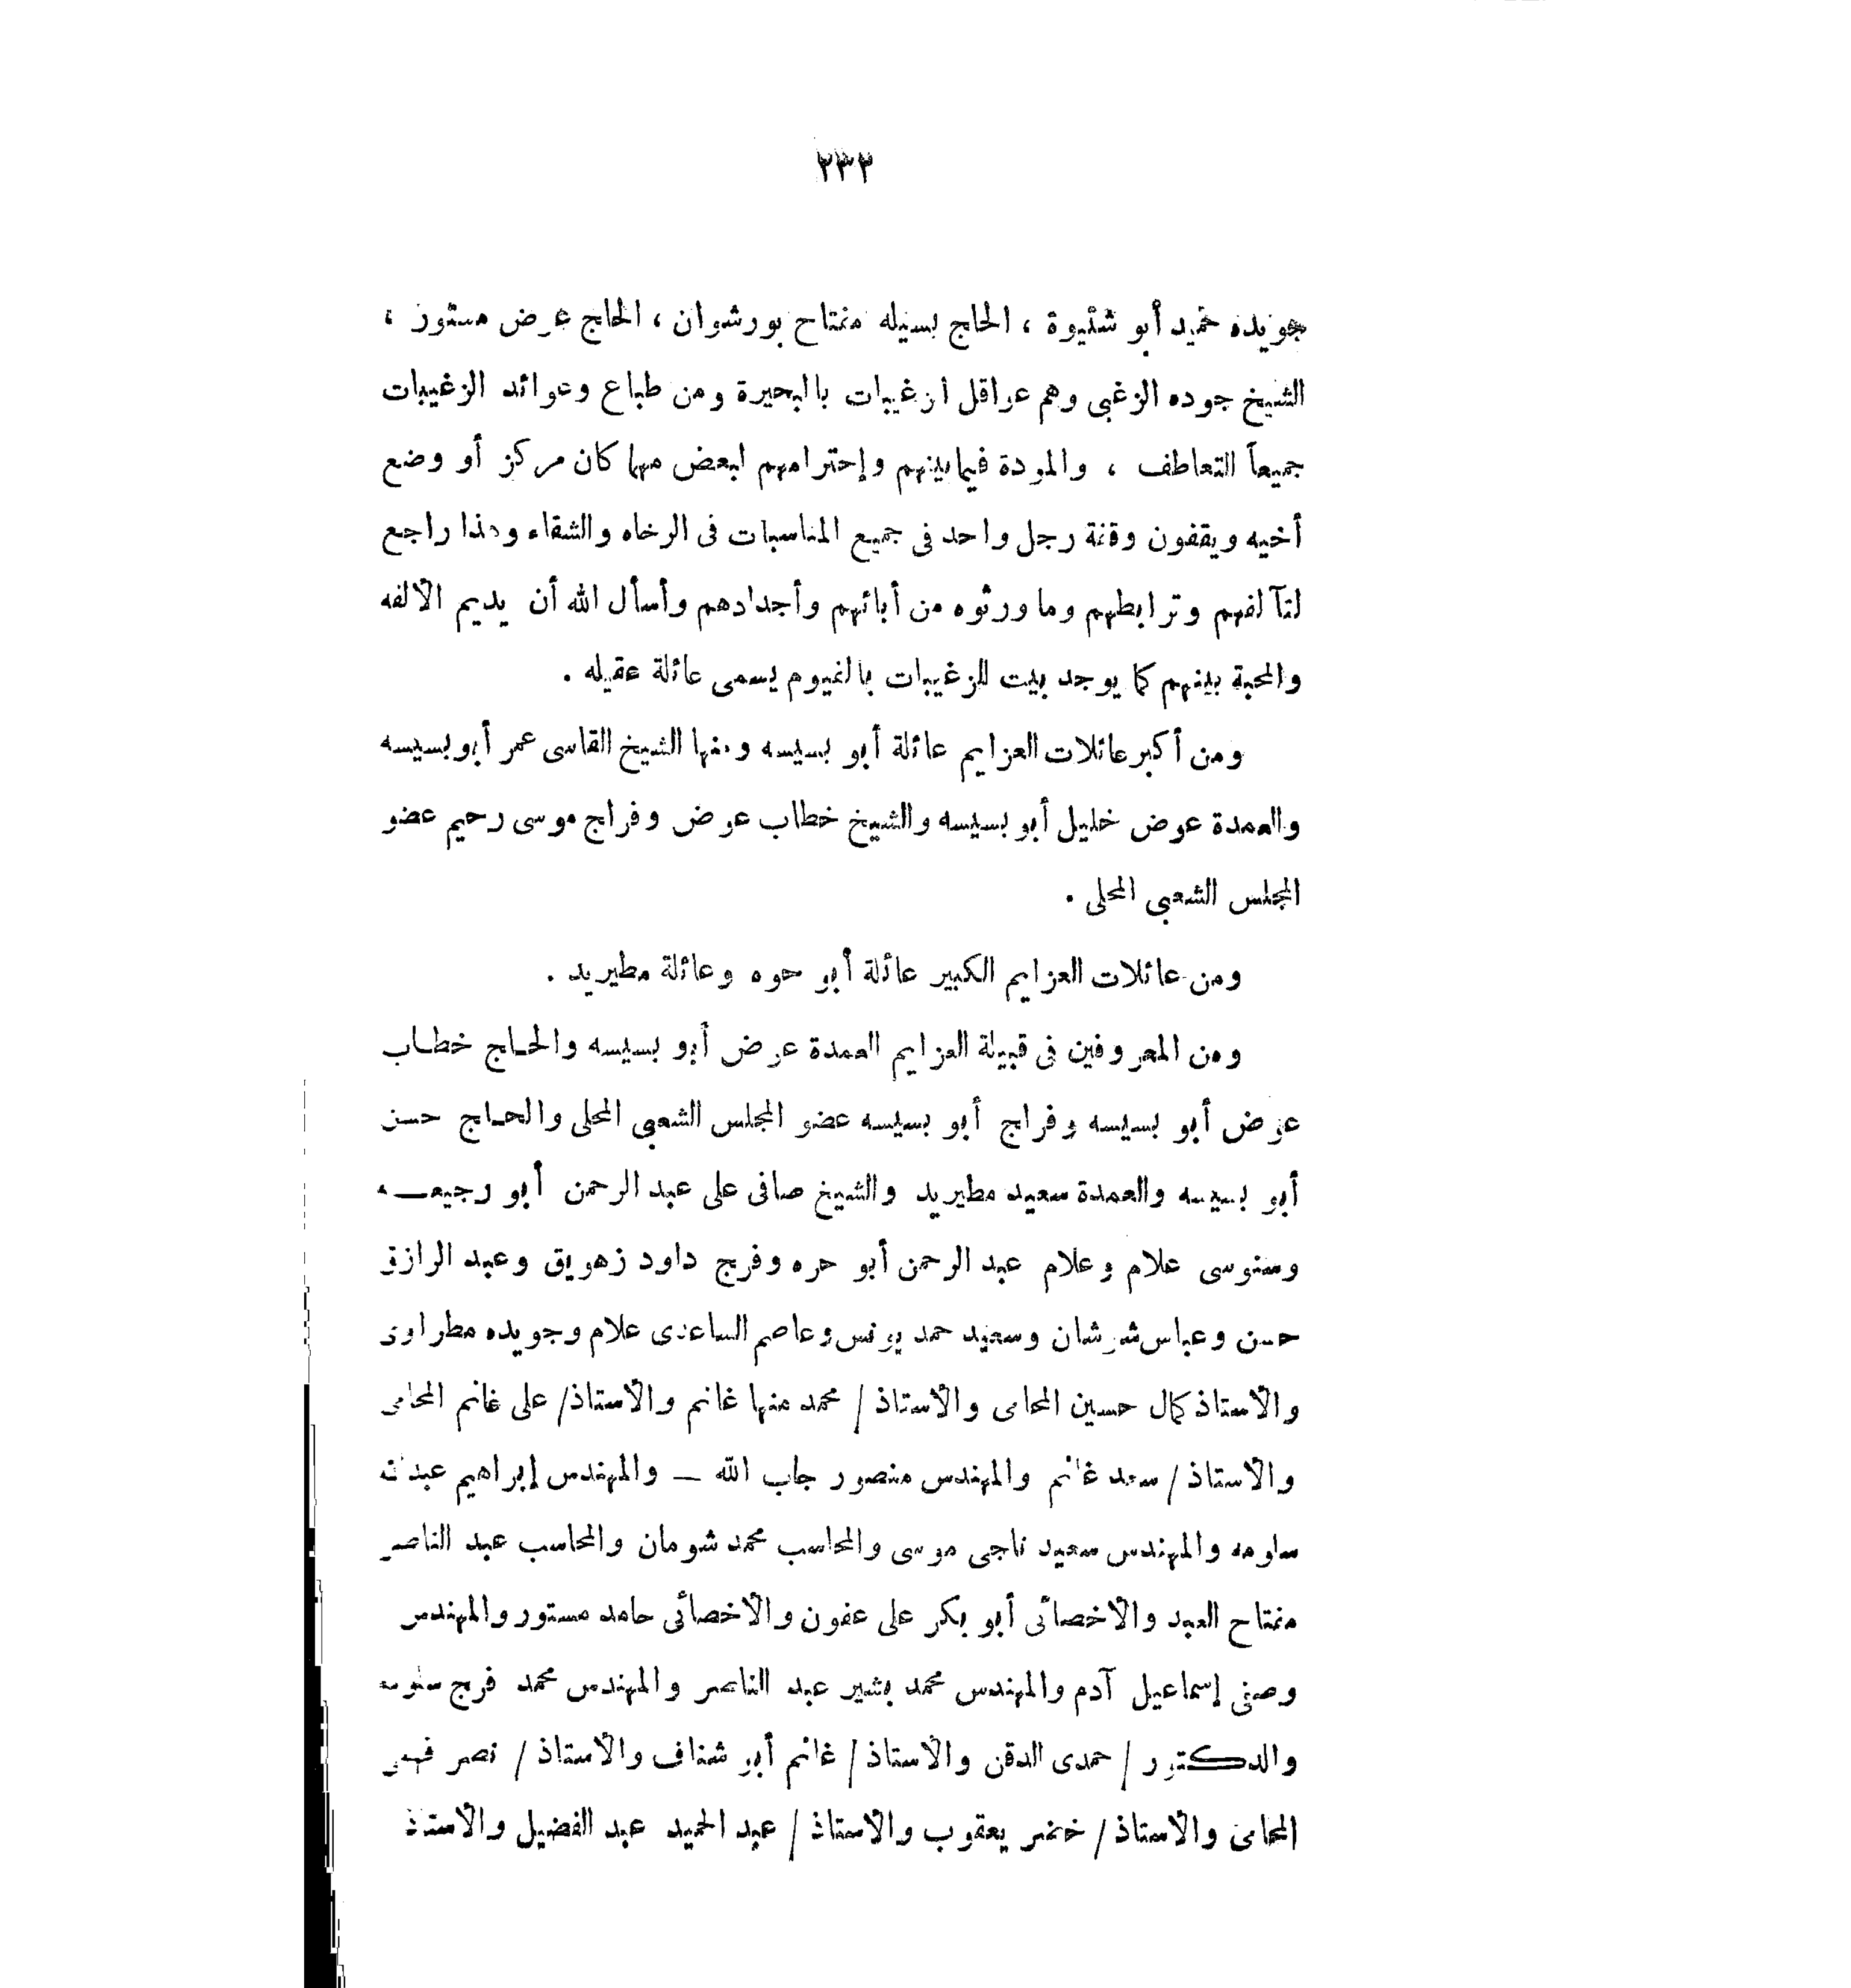 ٢٣٢
جويده حميد أبو شتيوة ، الحاج بسيله مفتاح بورشوان ، الحاج عوض مستور ،
الشيخ جوده الزغبى وهم عواقل الزغيبات بالبحيرة ومن طباع وعوائد الزغيبات
جميعاً التعاطف ، والمودة فيما بينهم وإحترامهم لبعض مهما كان مركز أو وضع
أخيه ويقفون وقفة رجل واحد فى جميع المناسبات فى الرخاه والشقاء وهذا راجع
لتآلفهم وترابطهم وما ورثوه من أبائهم وأجدادهم وأسأل الله أن يديم الألفه
والمحبة بينهم كما يوجد بيت للزغيبات بالفيوم يسمى عائلة عقيله .
ومن أكبر عائلات العزايم عائلة أبو بسيسه ومنها الشيخ القاسى عمر أبو بسيسه
والعمدة عوض خليل أبو بسيسه والشيخ خطاب عوض وفراج موسى رحيم عضو
المجلس الشعبى المحلى .
ومن عائلات العزايم الكبير عائلة أبو حوه وعائلة مطيريد .
ومن المعروفين فى قبيلة العزايم العمدة عوض أبو بسيسه والحاج خطاب
عوض أبو بسيسه وفراج أبو بسيسه عضو المجلس الشعبى المحلى والحاج حسن
أبو بسيسه والعمدة سعيد مطيريد والشيخ صافى على عبد الرحمن أبو رجيعه
وسنوسى علام وعلام عبد الرحمن أبو حره وفرج داود زهويق وعبد الرازق
حسن وعباس شرشان وسعيد حمد يونس وعاصم الساعدى علام وجويده مطراوى
والأستاذ كمال حسين المحامى والأستاذ / محمد منها غانم والأستاذ/ على غانم المحامى
والأستاذ / سعد غانم والمهندس منصور جاب الله — والمهندس إبراهيم عبد الله
سلومه والمهندس سعيد ناجى موسى والمحاسب محمد شومان والمحاسب عبد الناصر
مفتاح العبد والأخصائى أبو بكر على عفون والأخصائى حامد مستور والمهندس
وصفى إسماعيل آدم والمهندس محمد بشير عبد الناصر والمهندس محمد فرج سلومه
والدكتور / حمدى الدقن والأستاذ / غانم أبو شناف والأستاذ / نصر
المحامى والأستاذ / خضر يعقوب والأستاذ / عبد الحميد عبد الفضيل والأستاذ